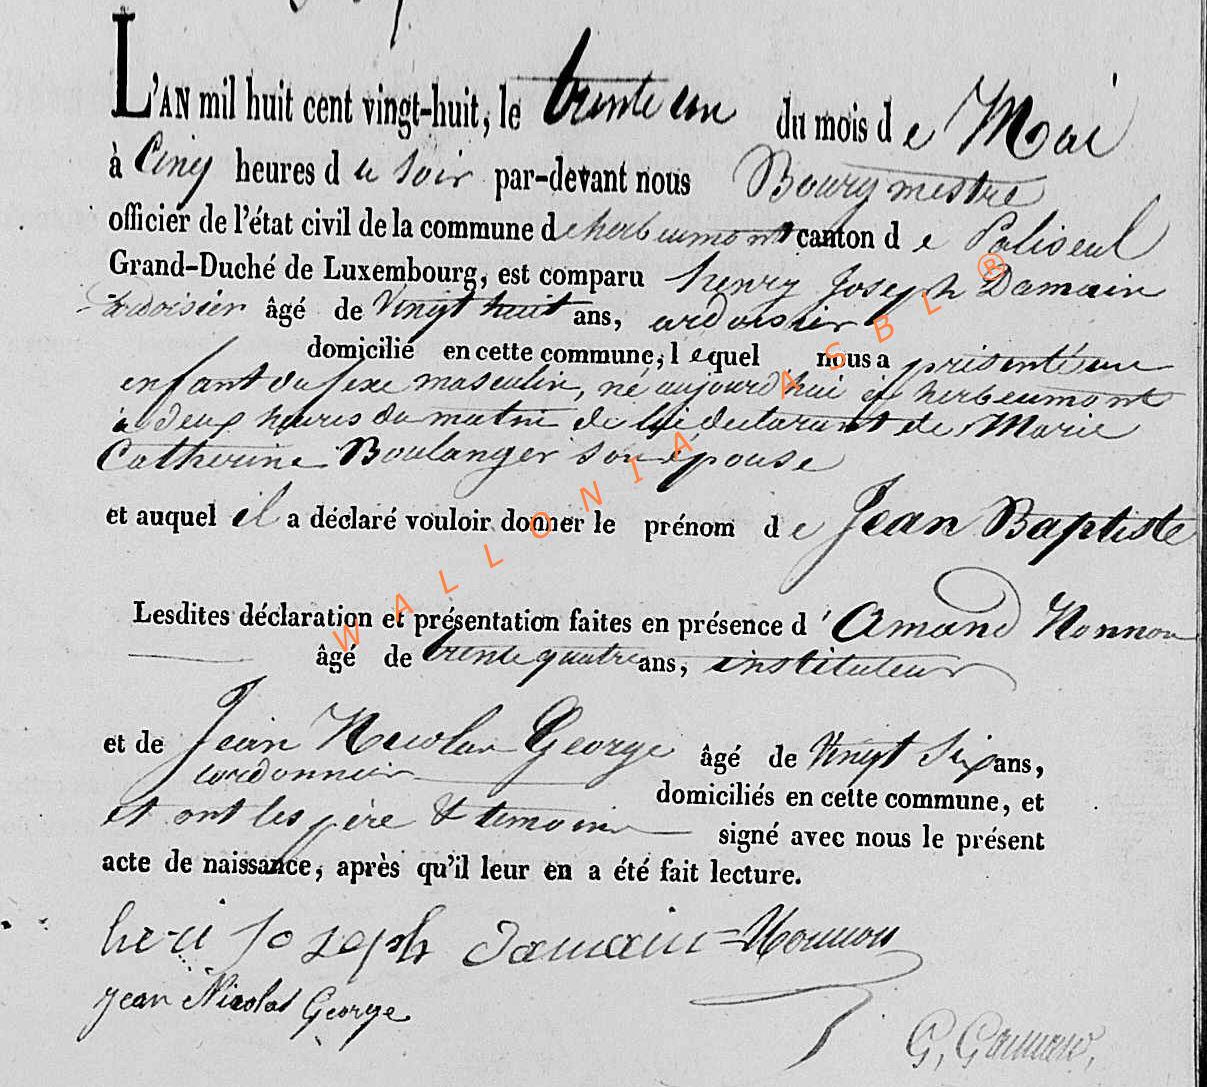 L'AN mil huit cent vingt-huit, le trente un du mois d e Mai
à Cinq heures d u soir par-devant nous Bourgmestre
officier de l'état civil de la commune d e herbeumont canton d e Paliseul
Grand-Duché de Luxembourg, est comparu henry Joseph Damain
ardoisier âgé de Vingt huit ans, ardoisier
domicilié en cette commune, l equel nous a présenté un
enfant du sexe masculin, né aujourd'hui à herbeumont
à deux heures du matin de lui déclarant et de Marie
Catherine Boulanger son épouse
et auquel il a déclaré vouloir donner le prénom d e Jean Baptiste
Lesdites déclaration et présentation faites en présence d 'Amand Nonnon
âgé de trente quatre ans, instituteur
et de Jean Nicolas George âgé de Vingt Six ans,
cordonnier
domiciliés en cette commune, et
et ont les père & temoins signé avec nous le présent
acte de naissance, après qu'il leur en a été fait lecture.
heri Joseph damain Nonnon
Jean Nicolas George
G,
WALLONIA ASBL ®